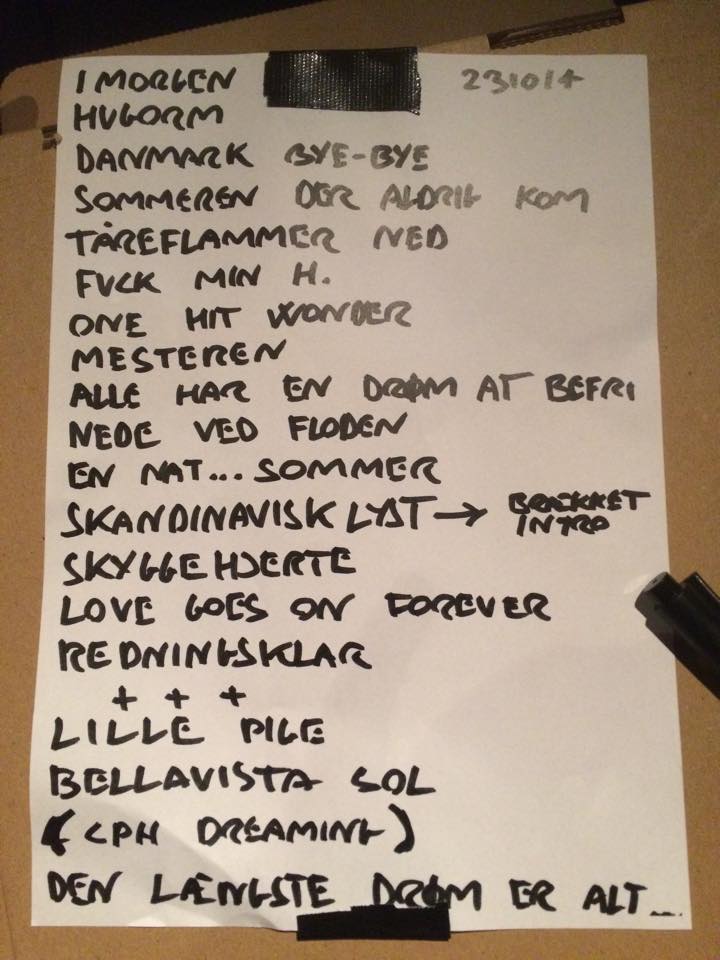 I MORGEN 231014
HUGORM
DANMARK BYE-BYE
SOMMEREN DER ALDRIG KOM
TÅREFLAMMER NED
FUCK MIN H.
ONE HIT WONDER
MESTEREN
ALLE HAR EN DRØM AT BEFRI
NEDE VED FLODEN
EN NAT... SOMMER
SKANDINAVISK LYST → BRÆKKET
INTRO
SKYGGEHJERTE
LOVE GOES ON FOREVER
REDNINGSKLAR
+ + +
LILLE PIGE
BELLAVISTA SOL
(CPH DREAMING)
DEN LÆNGSTE DRØM ER ALT...